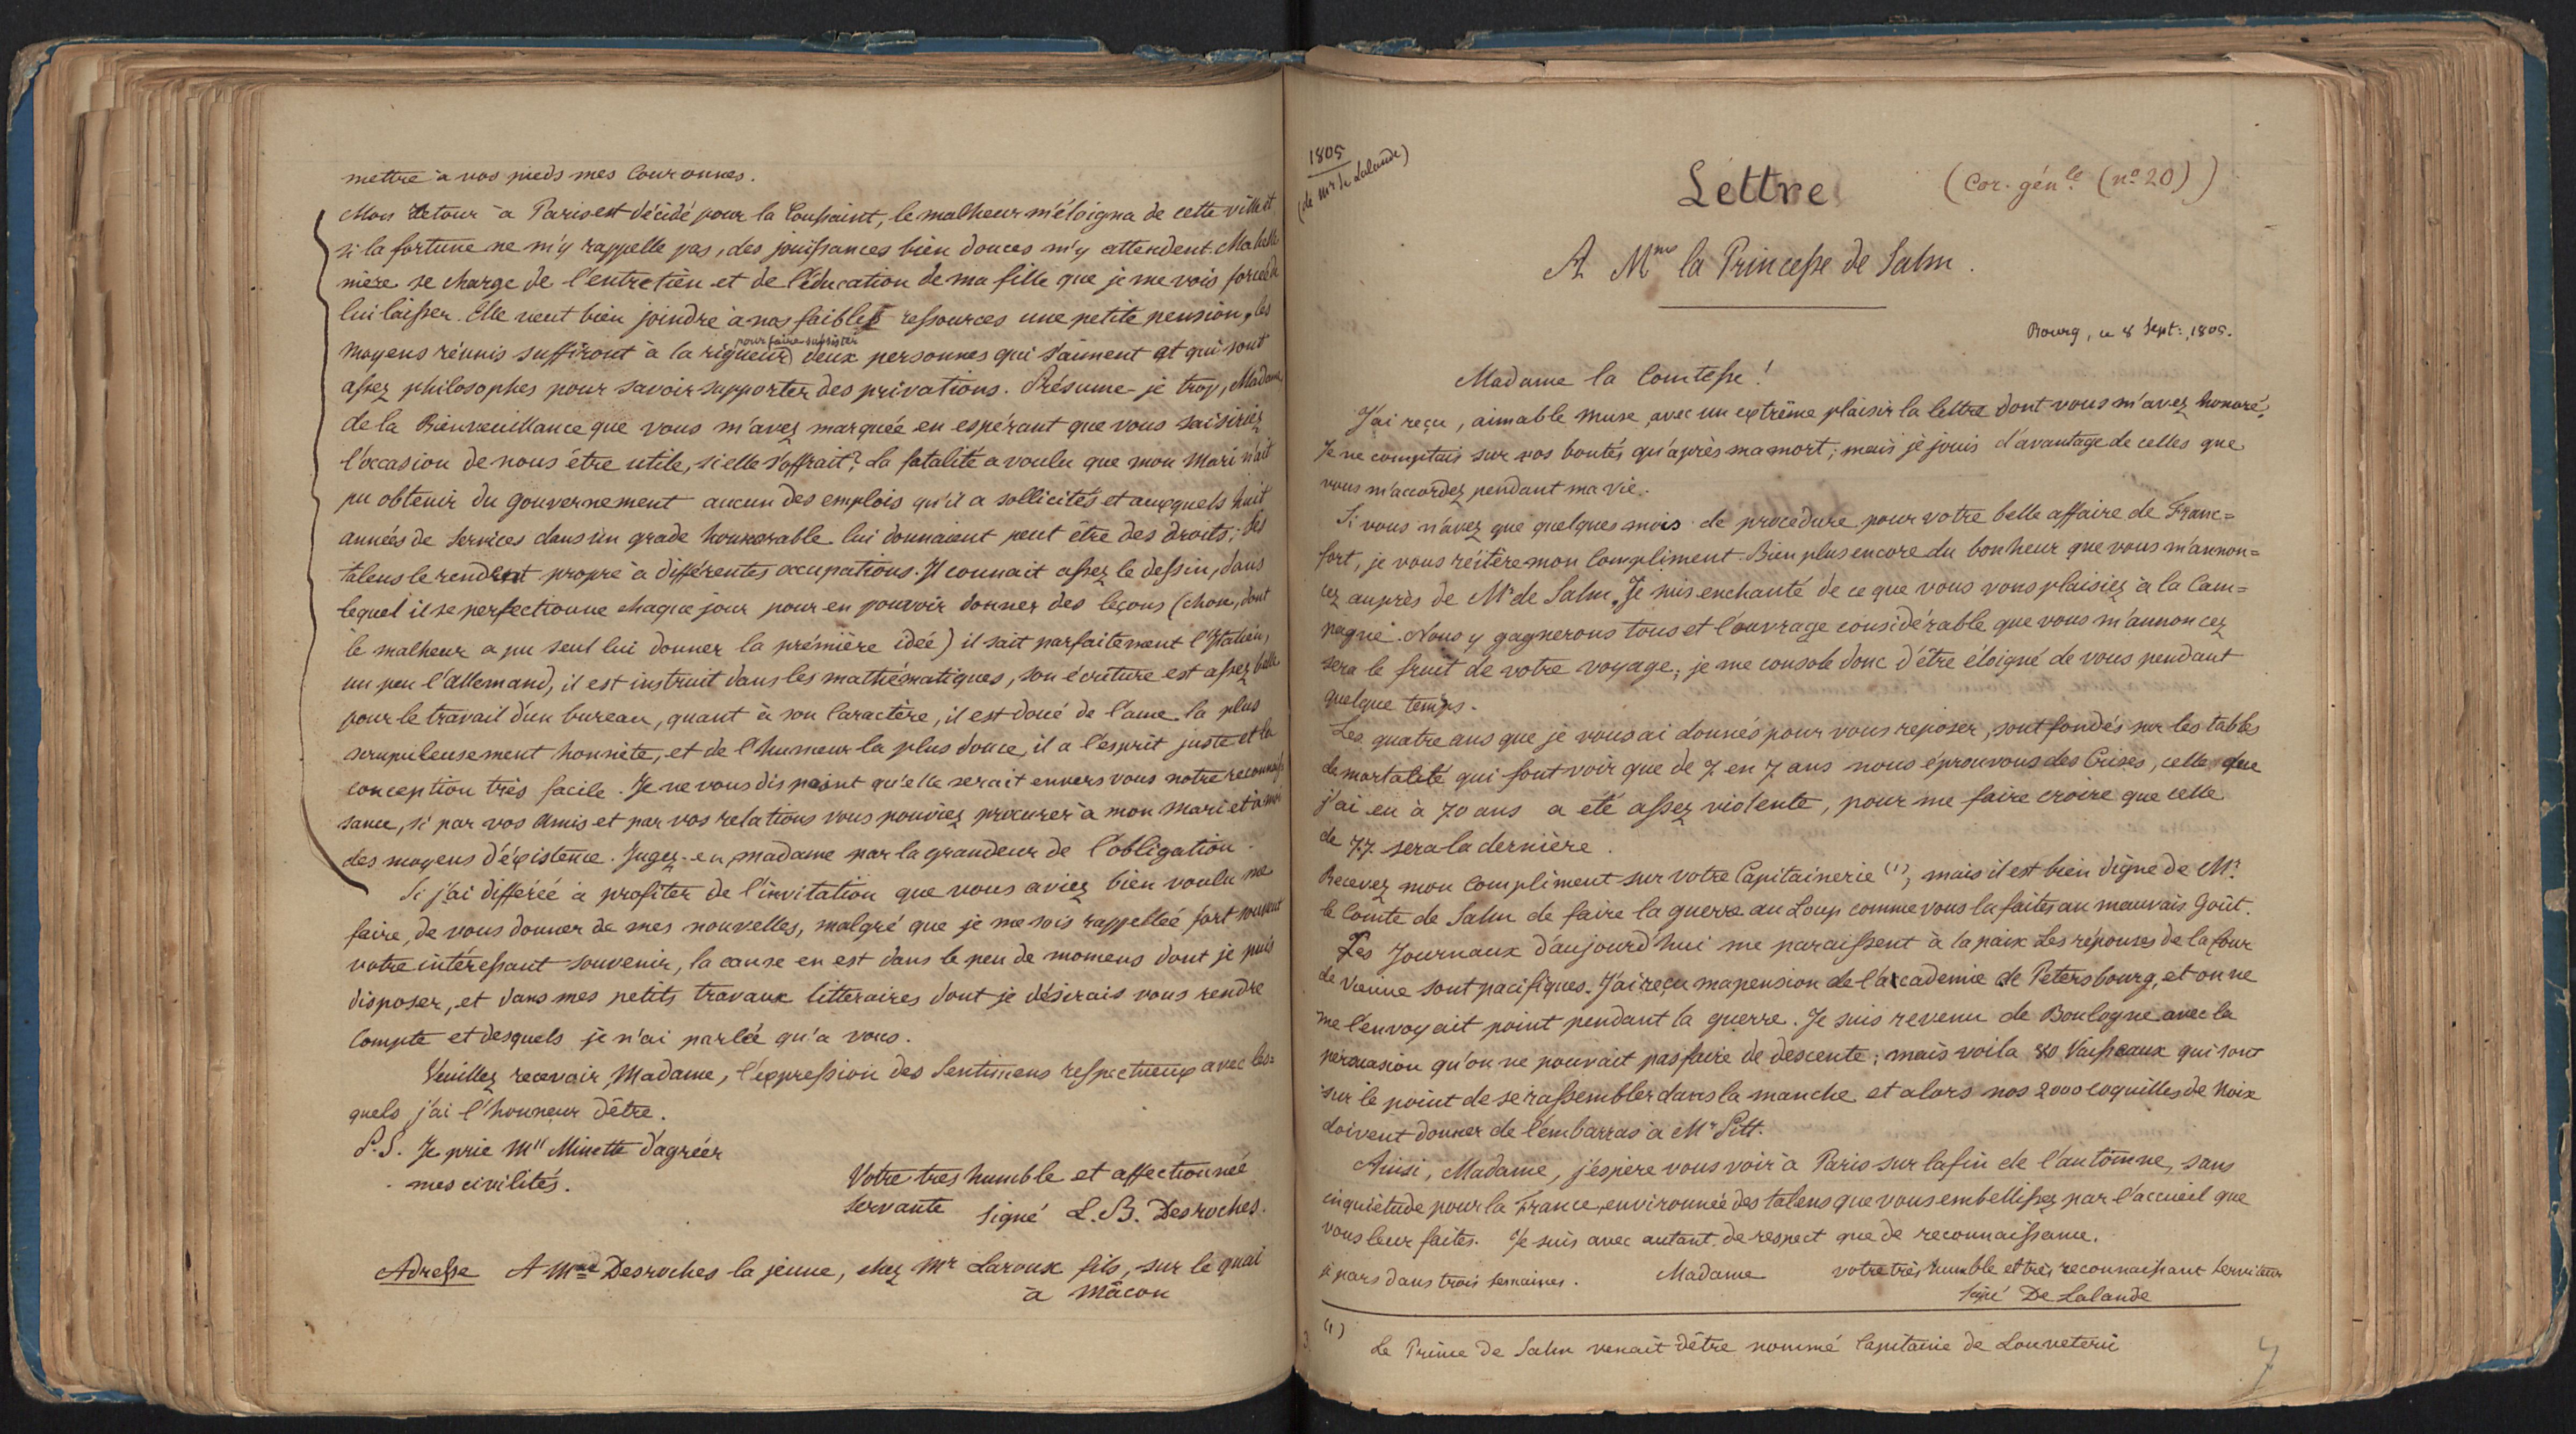 mettre à vos pieds mes Couronnes.
Mon retour à Paris est décidé pour la Toussaint, le malheur m'éloigna de cette ville et
si la fortune ne m'y rappelle pas, des jouissances bien douces m'y attendent. Ma belle
mère se charge de l'entretien et de l'éducation de ma fille que je me vois forcée de
lui laisser. Elle veut bien joindre à nos faibles ressources une petite pension, les
pour faire subsister
moyens réunis suffiront à la rigueur deux personnes qui s'aiment et qui sont
assez philosophes pour savoir supporter des privations. Présume-je trop, Madame,
de la Bienveuillance que vous m'avez marquée en espérant que vous saisiriez
l'occasion de nous être utile, si elle s'offrait? La fatalité a voulu que mon Mari n'ait
pu obtenir du gouvernement aucun des emplois qu'il a sollicités et auxquels huit
années de services dans un grade honnorable lui donnaient peut être des droits; ses
talens le rendent propre à différentes occupations. Il connait assez le dessin, dans
lequel il se perfectionne chaque jour pour en pouvoir donner des leçons (chose, dont
le malheur a pu seul lui donner la première idée) il sait parfaitement l'Italien,
un peu l'allemand, il est instruit dans les mathématiques, son écriture est assez belle
pour le travail d'un bureau, quant à son Caractère, il est doué de l'ame la plus
scrupuleusement honnête, et de l'humeur la plus douce, il a l'esprit juste et la
conception très facile. Je ne vous dis point qu'elle serait envers vous notre reconnais
sance, si par vos amis et par vos relations vous pouviez procurer à mon mari et à moi
des moyens d'éxistence. Jugez-en, madame par la grandeur de l'obligation.
Si j'ai différée à profiter de l'invitation que vous aviez bien voulu me
faire, de vous donner de mes nouvelles, malgré que je me sois rappellée fort souvent
votre intéressant souvenir, la cause en est dans le peu de momens dont je puis
disposer, et dans mes petits travaux litteraires dont je désirais vous rendre
compte et desquels je n'ai parlée qu'a vous.
Veuillez recevoir, Madame, l'expression des sentimens respectueux avec les=
quels j'ai l'honneur d'être.
P.S. Je prie Mll Minette d'agréer
mes civilités.
Votre très humble et affectionnée
servante signé L. B. Desroches.
Adresse A Mme Desroches la jeune, chez Mr Laroux fils, sur le quai
à Mâcon
1805
(de Mr de Lalande)
Lettre (Cor. génle (no 20))
A Mme la Princesse de Salm.
Bourg, ce 8 Sept: 1805.
Madame la Comtesse!
J'ai reçu, aimable muse, avec un extrême plaisir la lettre dont vous m'avez honoré.
Je ne comptais sur vos bontés qu'après ma mort; mais je jouis d'avantage de celles que
vous m'accordez pendant ma vie.
Si vous n'avez que quelques mois de procedure pour votre belle affaire de Franc=
fort, je vous réitère mon compliment. Bien plus encore du bonheur que vous m'annon=
cez auprès de Mr de Salm. Je suis enchanté de ce que vous vous plaisiez à la Cam=
pagne. Nous y gagnerons tous et l'ouvrage considérable que vous m'annoncez
sera le fruit de votre voyage; je me console donc d'être éloigné de vous pendant
quelque temps.
Les quatre ans que je vous ai donnés pour vous reposer, sont fondés sur les tables
de mortalité qui font voir que de 7 en 7 ans nous éprouvons des Crises, celle que
j'ai eu à 70 ans a été assez violente, pour me faire croire que celle
de 77 sera la dernière.
Recevez mon compliment sur votre Capitainerie (1), mais il est bien digne de Mr
le Comte de Salm de faire la guerre au Loup comme vous la faites au mauvais Goût.
Les Journaux d'aujourd'hui me paraissent à la paix. Les réponses de la Cour
de Vienne sont pacifiques. J'ai reçu ma pension de l'accademie de Pétersbourg, et on ne
me l'envoyait point pendant la guerre. Je suis revenu de Boulogne avec la
persuasion qu'on ne pouvait pas faire de descente; mais voila 80 Vaisseaux qui sont
sur le point de se rassembler dans la manche et alors nos 2000 coquilles de Noix
doivent donner de l'embarras à Mr Pitt.
Ainsi, Madame, j'éspère vous voir à Paris sur la fin de l'automne, sans
inquiétude pour la France, environnée des talens que vous embellissez par l'accueil que
vous leur faites. Je suis avec autant de respect que de reconnaissance.
je pars dans trois semaines. Madame votre très humble et très reconnaissant serviteur
Signé De Lalande
(1)
Le Prince de Salm venait d'être nommé Capitaine de Louveterie